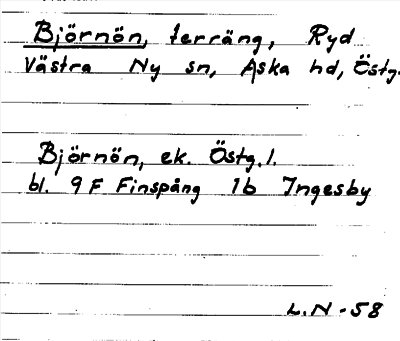 Björnön, terräng, Ryd
Västra Ny sn, Aska hd, Östg.
Björnön, ek. Östg. l.
bl. 9 F Finspång 1b Ingesby
L. N - 58